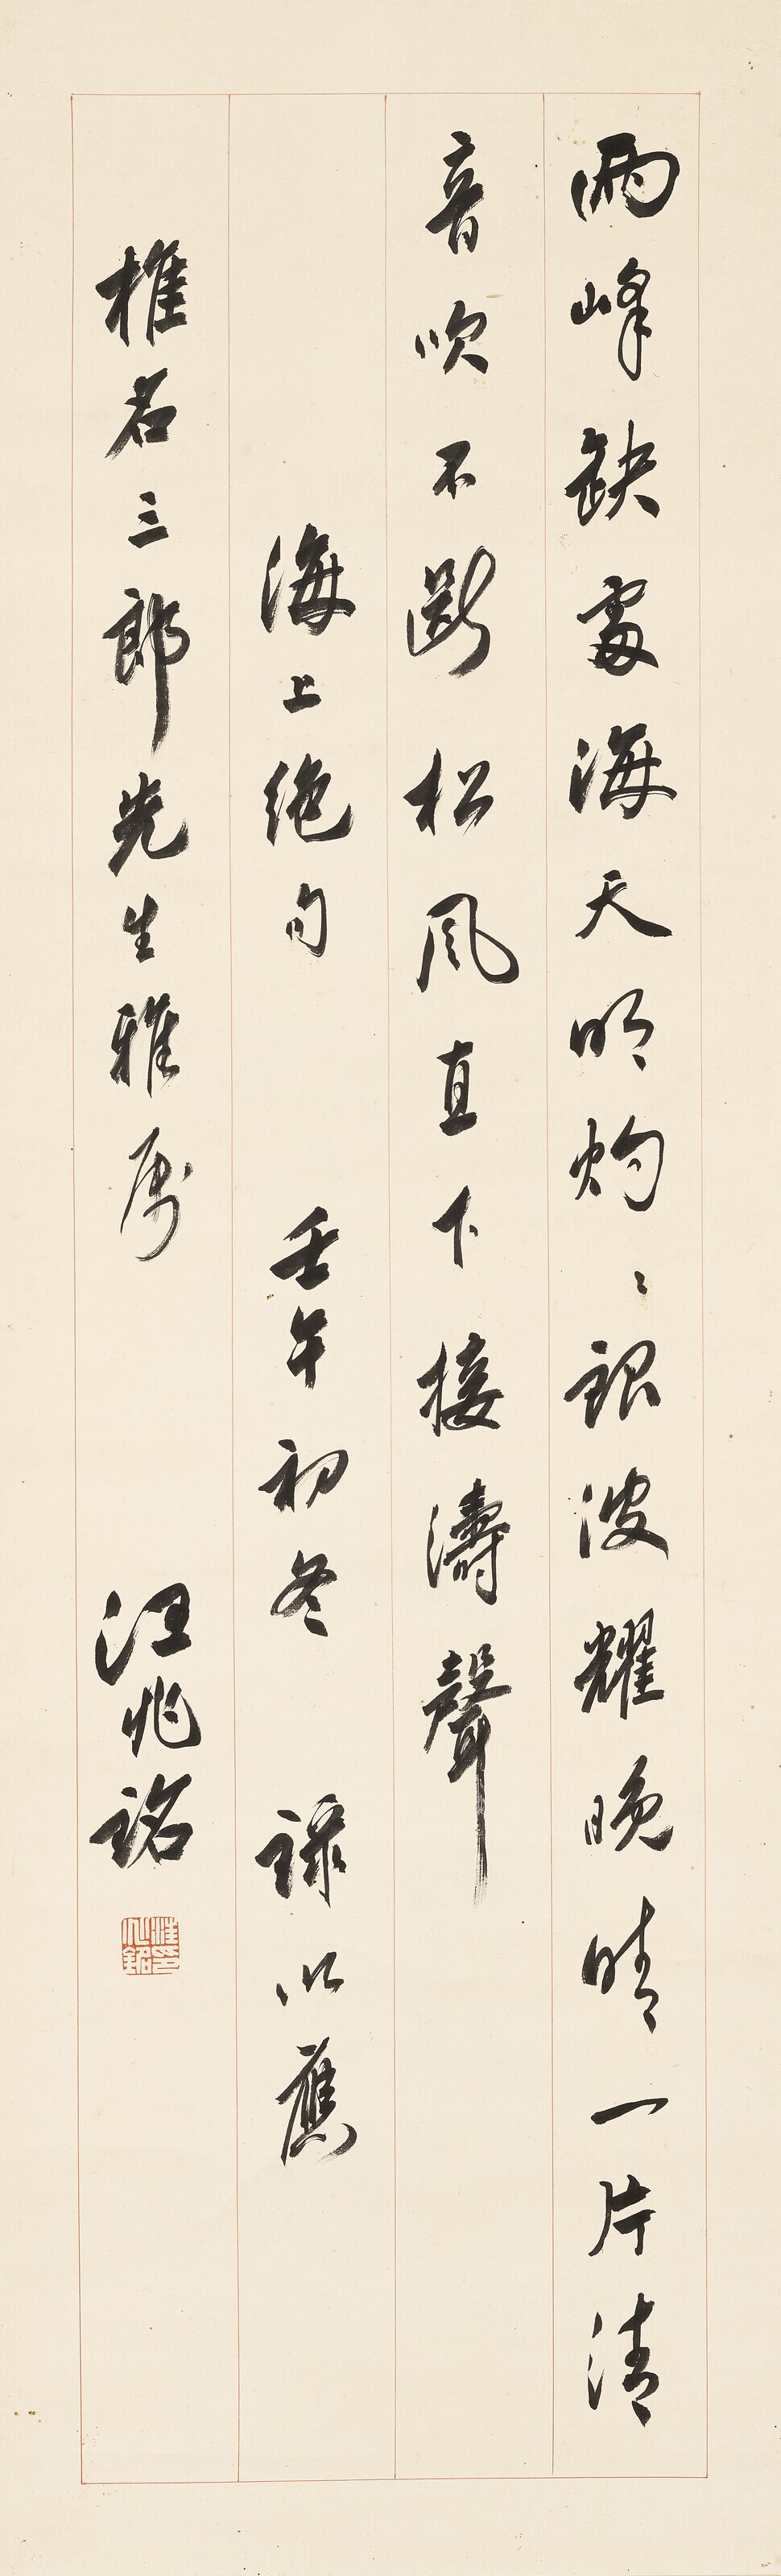 兩峰缺處海天明灼〻銀波耀晚晴一片清
音吹不斷松風直下接濤聲
海上絕句 壬午初冬 錄以應
椎名三郎先生雅屬 汪兆銘
汪兆銘印